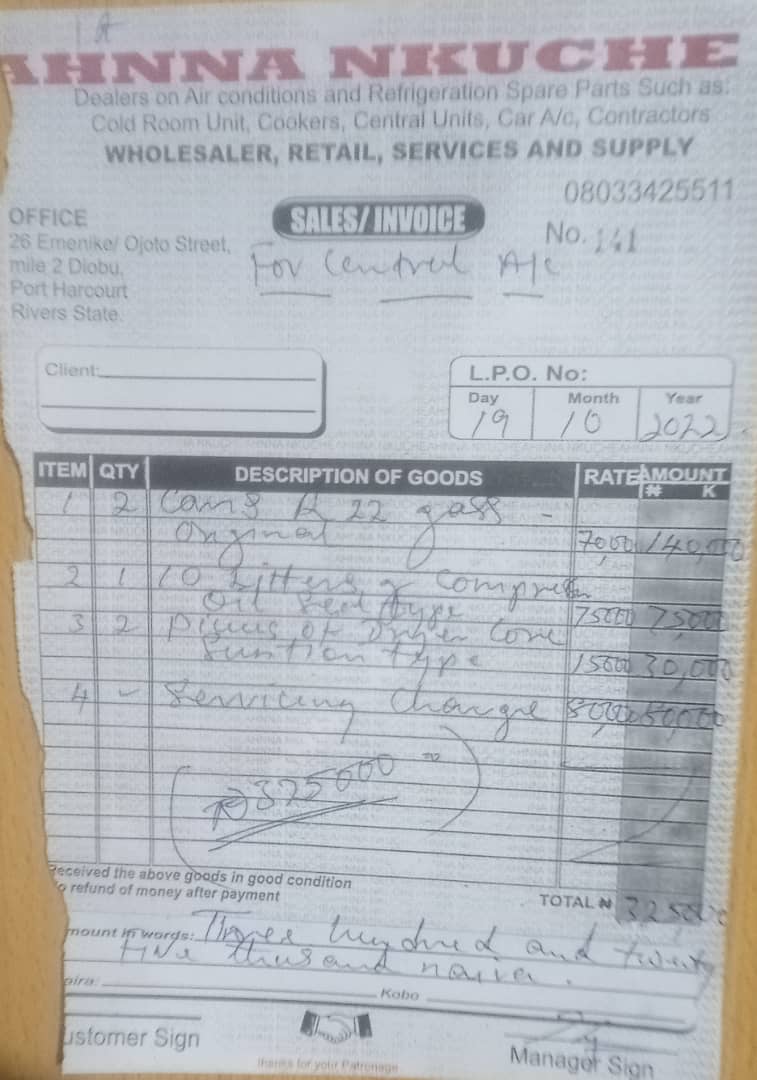 AHNNA NKUCHE
Dealers on Air conditions and Refrigeration Spare Parts Such as:
Cold Room Unit, Cookers, Central Units, Car A/c, Contractors
WHOLESALER, RETAIL, SERVICES AND SUPPLY
08033425511
OFFICE
26 Emenike/ Ojoto Street,
mile 2 Diobu,
Port Harcourt
Rivers State.
SALES/INVOICE
No. 141
For Central A/c
Client:
L.P.O. No:
Day Month Year
19 10 2022
ITEM QTY DESCRIPTION OF GOODS RATE AMOUNT
₦ K
1 2 Cans R 22 gass -
Original 70,000 140,000
2 1 10 Litters of Compressor
Oil Seal type 75000 75,000
3 2 Pieces of Dryer Core
Suction type 15000 30,000
4 - Servicing Charge 80,000 80,000
₦325000
Received the above goods in good condition
No refund of money after payment
TOTAL ₦ 325000
mount in words: Three hundred and twenty
five thusand naira.
aira: Kobo
ustomer Sign
thanks for your Patronage
Manager Sign